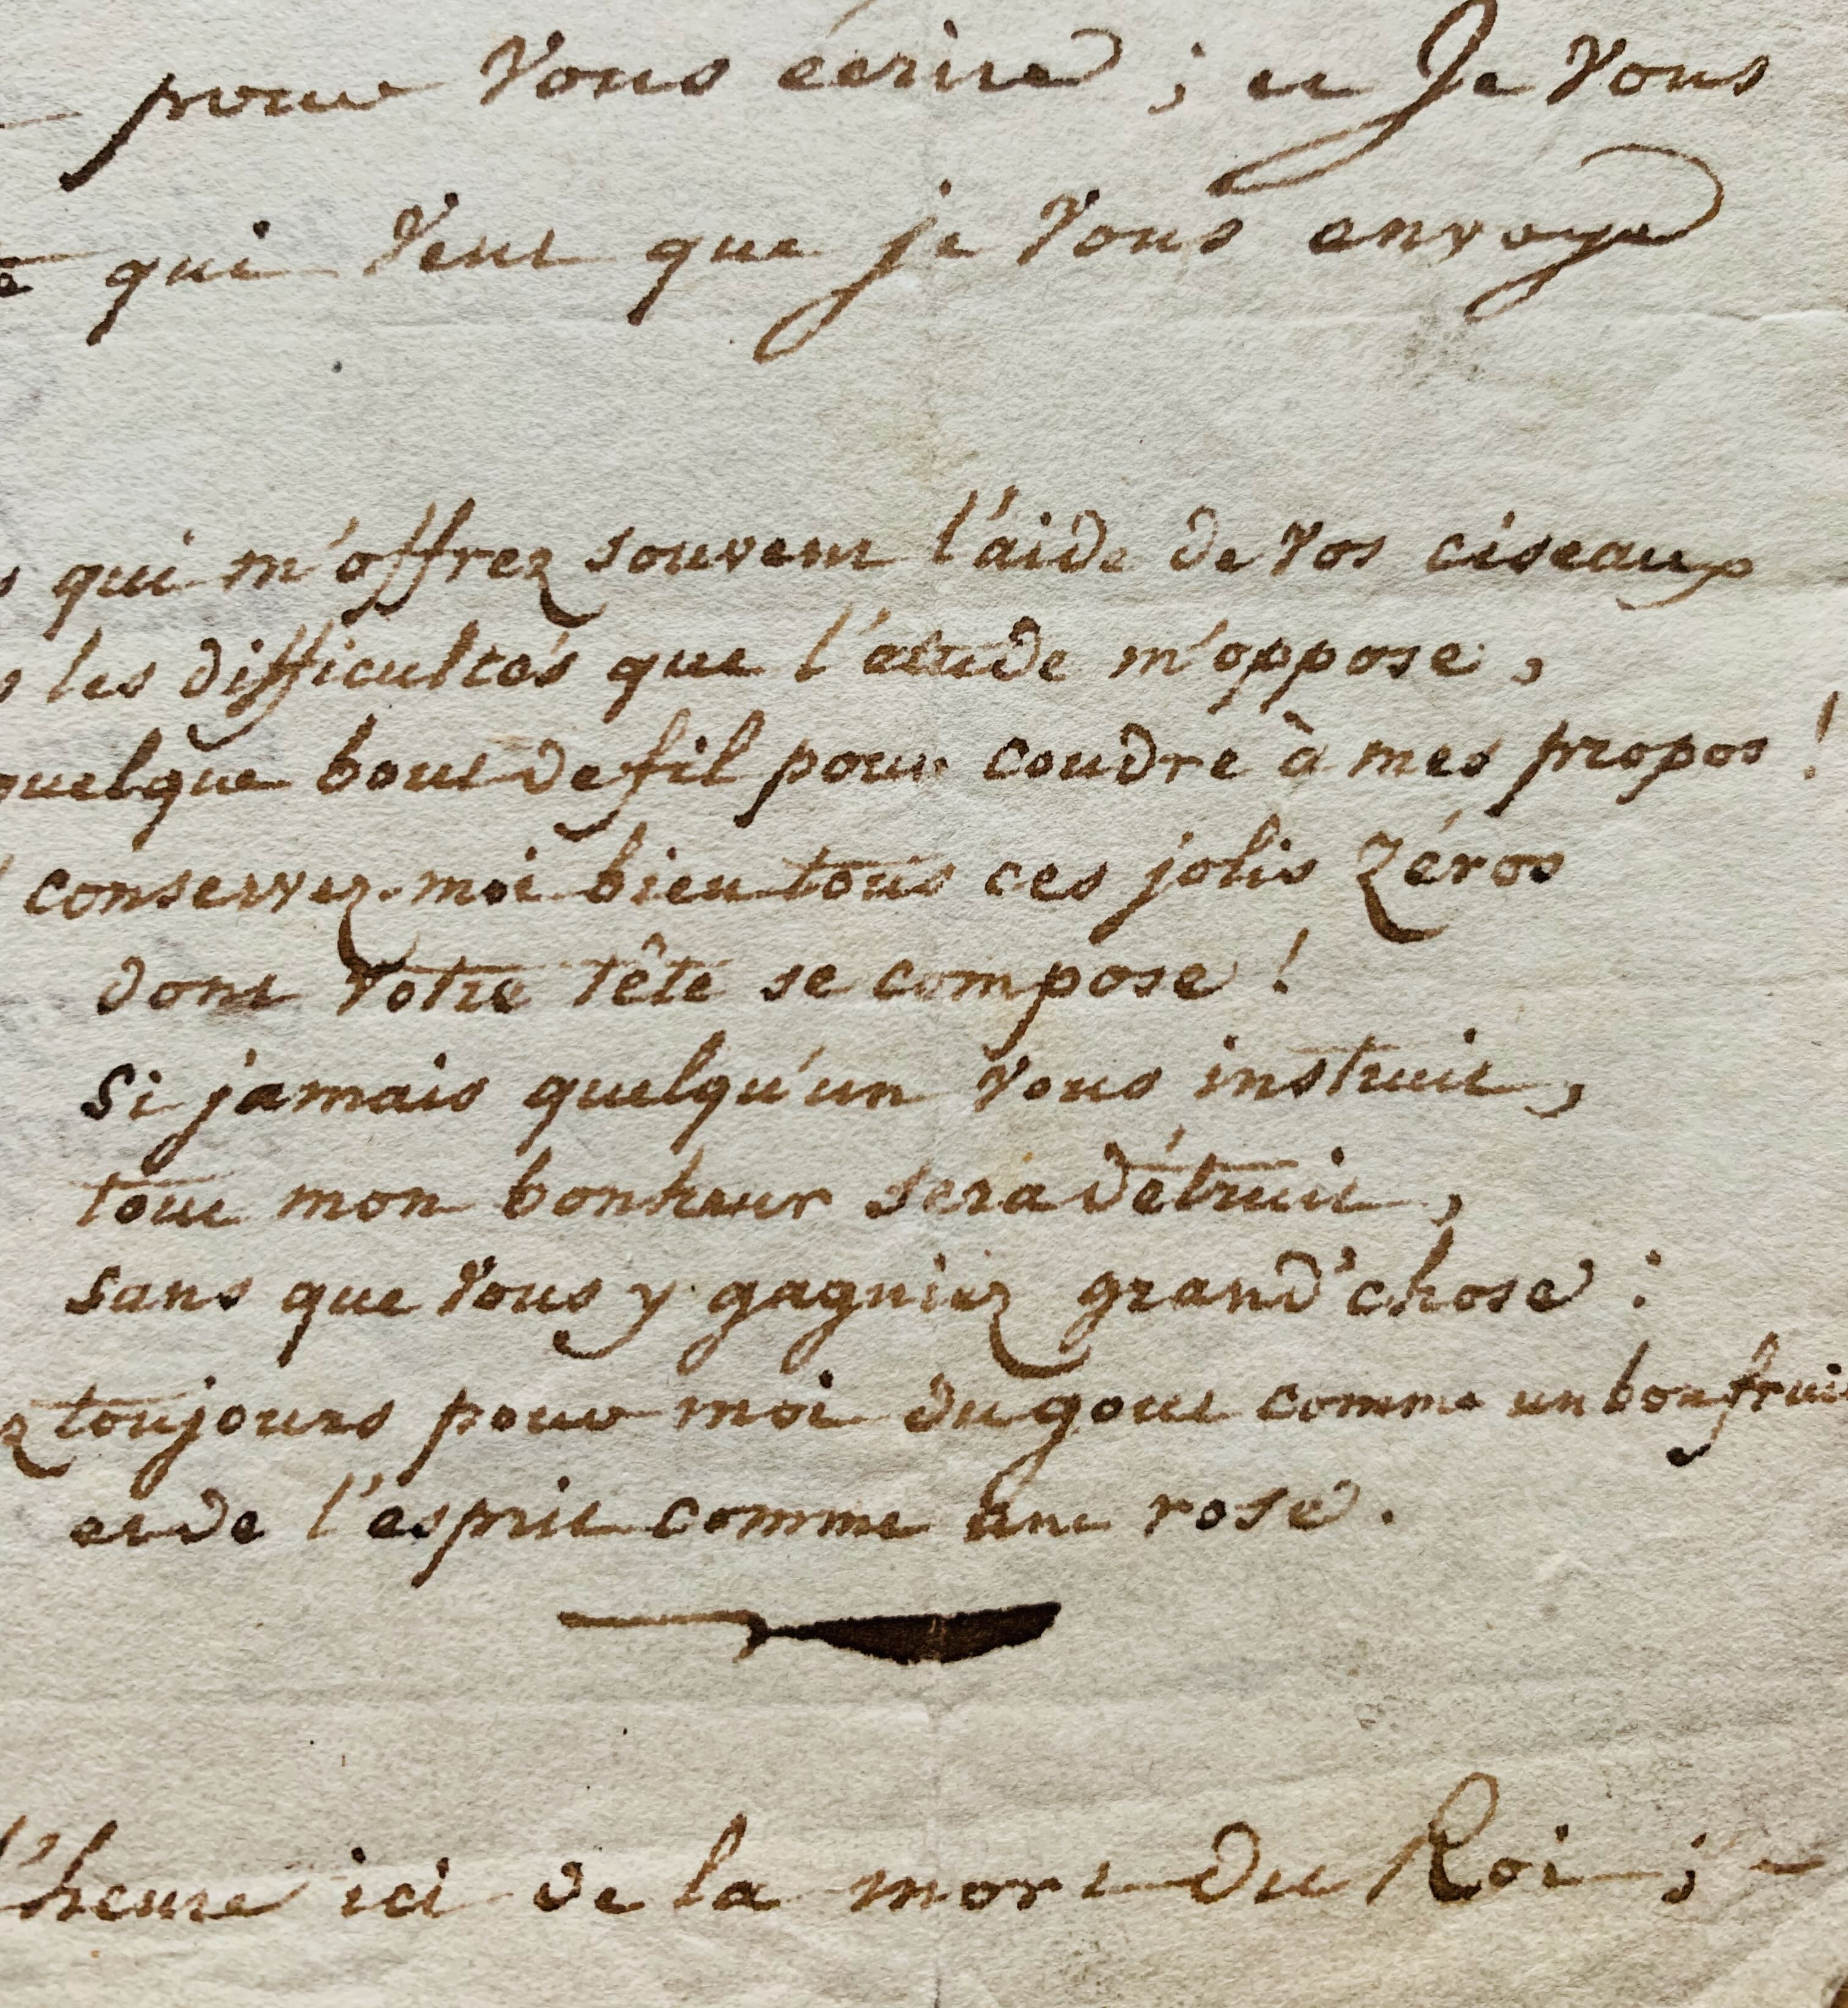 pour Vous écrire ; et Je Vous
qui Veut que je Vous envoye
qui m'offrez souvent l'aide de Vos ciseaux
les difficultés que l'étude m'oppose,
quelque bout de fil pour coudre à mes propos !
conservez-moi bien tous ces jolis Zéros
dont Votre tête se compose !
Si jamais quelqu'un Vous instruit,
tout mon bonheur sera détruit,
sans que Vous y gagniez grand'chose :
toujours pour moi du gout comme un bon fruit
et de l'esprit comme une rose.
l'heure ici de la mort du Roi ;